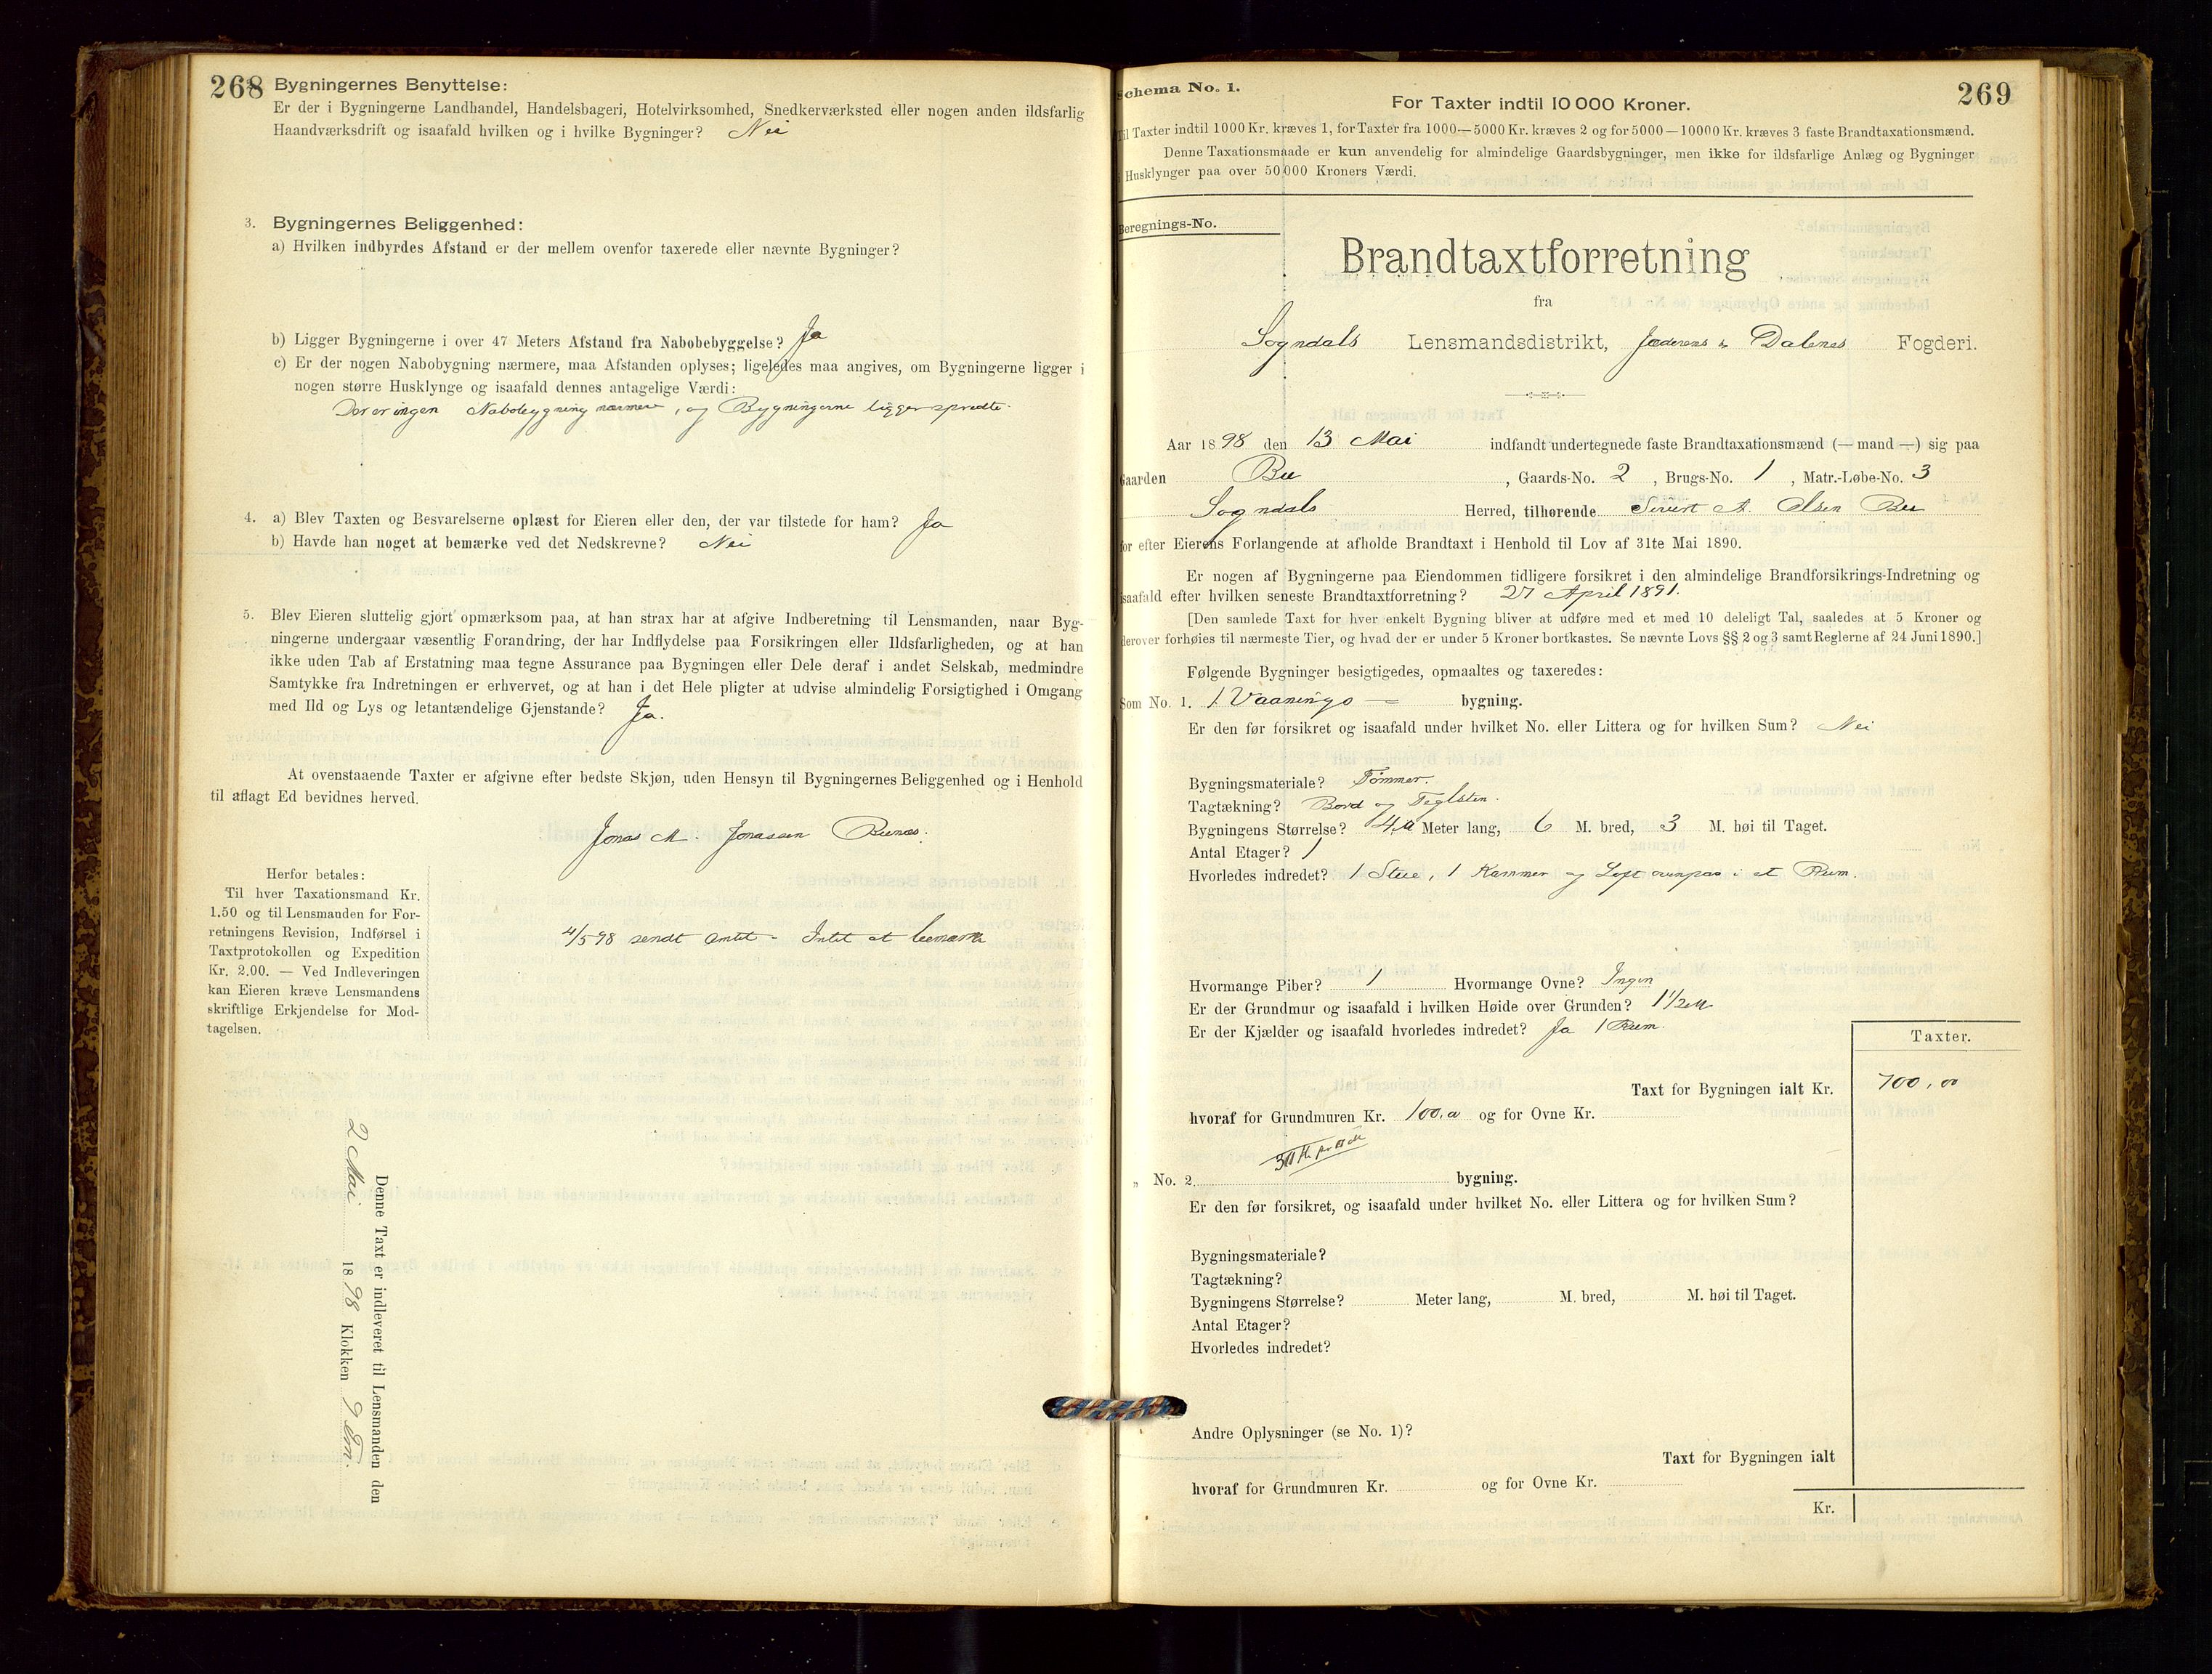 268
Bygningernes Benyttelse:
Er der i Bygningerne Landhandel, Handelsbageri, Hotelvirksomhed, Snedkerværksted eller nogen anden ildsfarlig
Haandværksdrift og isaafald hvilken og i hvilke Bygninger? Nei
3. Bygningernes Beliggenhed:
a) Hvilken indbyrdes Afstand er der mellem ovenfor taxerede eller nævnte Bygninger?
b) Ligger Bygningerne i over 47 Meters Afstand fra Nabobebyggelse? Ja
c) Er der nogen Nabobygning nærmere, maa Afstanden oplyses; ligeledes maa angives, om Bygningerne ligger i
nogen større Husklynge og isaafald dennes antagelige Værdi:
Der er ingen Nabobygning nærmere, og Bygningerne ligger spredte.
4. a) Blev Taxten og Besvarelserne oplæst for Eieren eller den, der var tilstede for ham? Ja
b) Havde han noget at bemærke ved det Nedskrevne? Nei
5. Blev Eieren sluttelig gjort opmærksom paa, at han strax har at afgive Indberetning til Lensmanden, naar Byg-
ningerne undergaar væsentlig Forandring, der har Indflydelse paa Forsikringen eller Ildsfarligheden, og at han
ikke uden Tab af Erstatning maa tegne Assurance paa Bygningen eller Dele deraf i andet Selskab, medmindre
Samtykke fra Indretningen er erhvervet, og at han i det Hele pligter at udvise almindelig Forsigtighed i Omgang
med Ild og Lys og letantændelige Gjenstande? Ja.
At ovenstaaende Taxter er afgivne efter bedste Skjøn, uden Hensyn til Bygningernes Beliggenhed og i Henhold
til aflagt Ed bevidnes herved.
Jonas M. Jonassen
Herfor betales:
Til hver Taxationsmand Kr.
1.50 og til Lensmanden for For-
retningens Revision, Indførsel i
Taxtprotokollen og Expedition
Kr. 2.00. — Ved Indleveringen
kan Eieren kræve Lensmandens
skriftlige Erkjendelse for Mod-
tagelsen.
4/5 98 sendt Amtet - Intet at bemærke
Denne Taxt er indleveret til Lensmanden den
2 Mai 1898 Klokken 9 Em.
269
Schema No. 1.
For Taxter indtil 10 000 Kroner.
Til Taxter indtil 1000 Kr. kræves 1, for Taxter fra 1000—5000 Kr. kræves 2 og for 5000—10000 Kr. kræves 3 faste Brandtaxationsmænd.
Denne Taxationsmaade er kun anvendelig for almindelige Gaardsbygninger, men ikke for ildsfarlige Anlæg og Bygninger
i Husklynger paa over 50 000 Kroners Værdi.
Beregnings-No.
Brandtaxtforretning
fra
Sogndals Lensmandsdistrikt, Jæderens & Dalenes Fogderi.
Aar 1898 den 13 Mai indfandt undertegnede faste Brandtaxationsmænd (—mand—) sig paa
Gaarden Bu, Gaards-No. 2, Brugs-No. 1, Matr.-Løbe-No. 3
Sogndals Herred, tilhørende Sivert A. Olsen Bu
for efter Eierens Forlangende at afholde Brandtaxt i Henhold til Lov af 31te Mai 1890.
Er nogen af Bygningerne paa Eiendommen tidligere forsikret i den almindelige Brandforsikrings-Indretning og
isaafald efter hvilken seneste Brandtaxtforretning? 27 April 1891.
[Den samlede Taxt for hver enkelt Bygning bliver at udføre med et med 10 deleligt Tal, saaledes at 5 Kroner og
derover forhøies til nærmeste Tier, og hvad der er under 5 Kroner bortkastes. Se nævnte Lovs §§ 2 og 3 samt Reglerne af 24 Juni 1890.]
Følgende Bygninger besigtigedes, opmaaltes og taxeredes:
Som No. 1. 1 Vaanings = bygning.
Er den før forsikret og isaafald under hvilket No. eller Littera og for hvilken Sum? Nei
Bygningsmateriale? Tømmer.
Tagtækning? Bord og Teglsten.
Bygningens Størrelse? Meter lang, 6 M. bred, 3 M. høi til Taget.
Antal Etager? 1
Hvorledes indredet? 1 Stue, 1 Kammer og Loft ovenpaa i et Rum.
Hvormange Piber? 1 Hvormange Ovne? Ingen
Er der Grundmur og isaafald i hvilken Høide over Grunden? 1 1/2 M
Er der Kjælder og isaafald hvorledes indredet? Ja 1 Rum.
Taxter.
Taxt for Bygningen ialt Kr. 700,00
hvoraf for Grundmuren Kr. 100,00 og for Ovne Kr.
„ No. 2. bygning.
Er den før forsikret, og isaafald under hvilket No. eller Littera og for hvilken Sum?
Bygningsmateriale?
Tagtækning?
Bygningens Størrelse? Meter lang, M. bred, M. høi til Taget.
Antal Etager?
Hvorledes indredet?
Andre Oplysninger (se No. 1)?
Taxt for Bygningen ialt
hvoraf for Grundmuren Kr. og for Ovne Kr.
Kr.